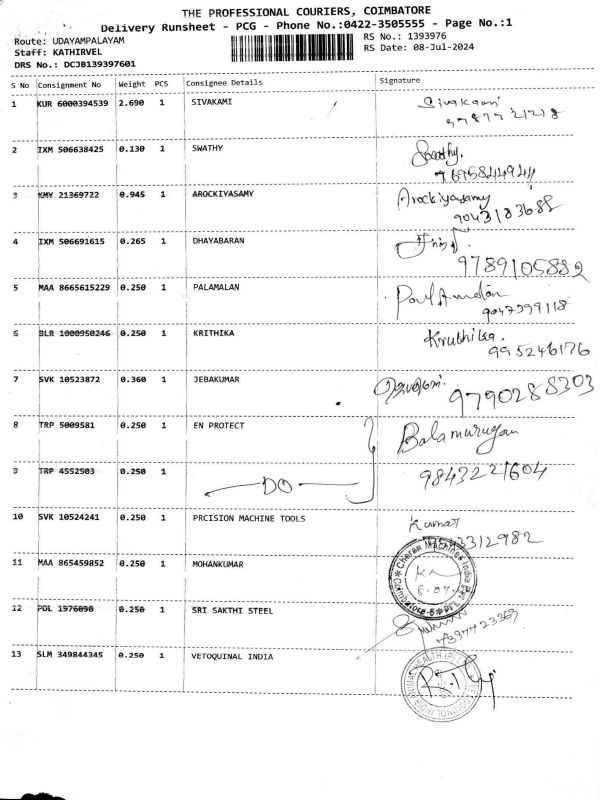 THE PROFESSIONAL COURIERS, COIMBATORE
Delivery Runsheet - PCG - Phone No.:0422-3505555 - Page No.:1
Route: UDAYAMPALAYAM
Staff: KATHIRVEL
DRS No.: DCJB139397601
RS No.: 1393976
RS Date: 08-Jul-2024
S No Consignment No Weight PCS Consignee Details Signature
1 KUR 6000394539 2.690 1 SIVAKAMI Sivakami
9787721218
2 IXM 506638425 0.130 1 SWATHY Swathy.
3 KMY 21369722 0.945 1 AROCKIYASAMY Arockiyasamy
9043183688
4 IXM 506691615 0.265 1 DHAYABARAN
9789105882
5 MAA 8665615229 0.250 1 PALAMALAN
6 BLR 1000950246 0.250 1 KRITHIKA Kruthika.
995246176
7 SVK 10523872 0.360 1 JEBAKUMAR
9790288303
8 TRP 5009581 0.250 1 EN PROTECT Balamurugan
9843221604
9 TRP 4552503 0.250 1 DO
10 SVK 10524241 0.250 1 PRCISION MACHINE TOOLS Kumar
11 MAA 865459852 0.250 1 MOHANKUMAR
Cheran Machines India Pvt. Ltd.
12 POL 1976090 0.250 1 SRI SAKTHI STEEL
13 SLM 349844345 0.250 1 VETOQUINAL INDIA